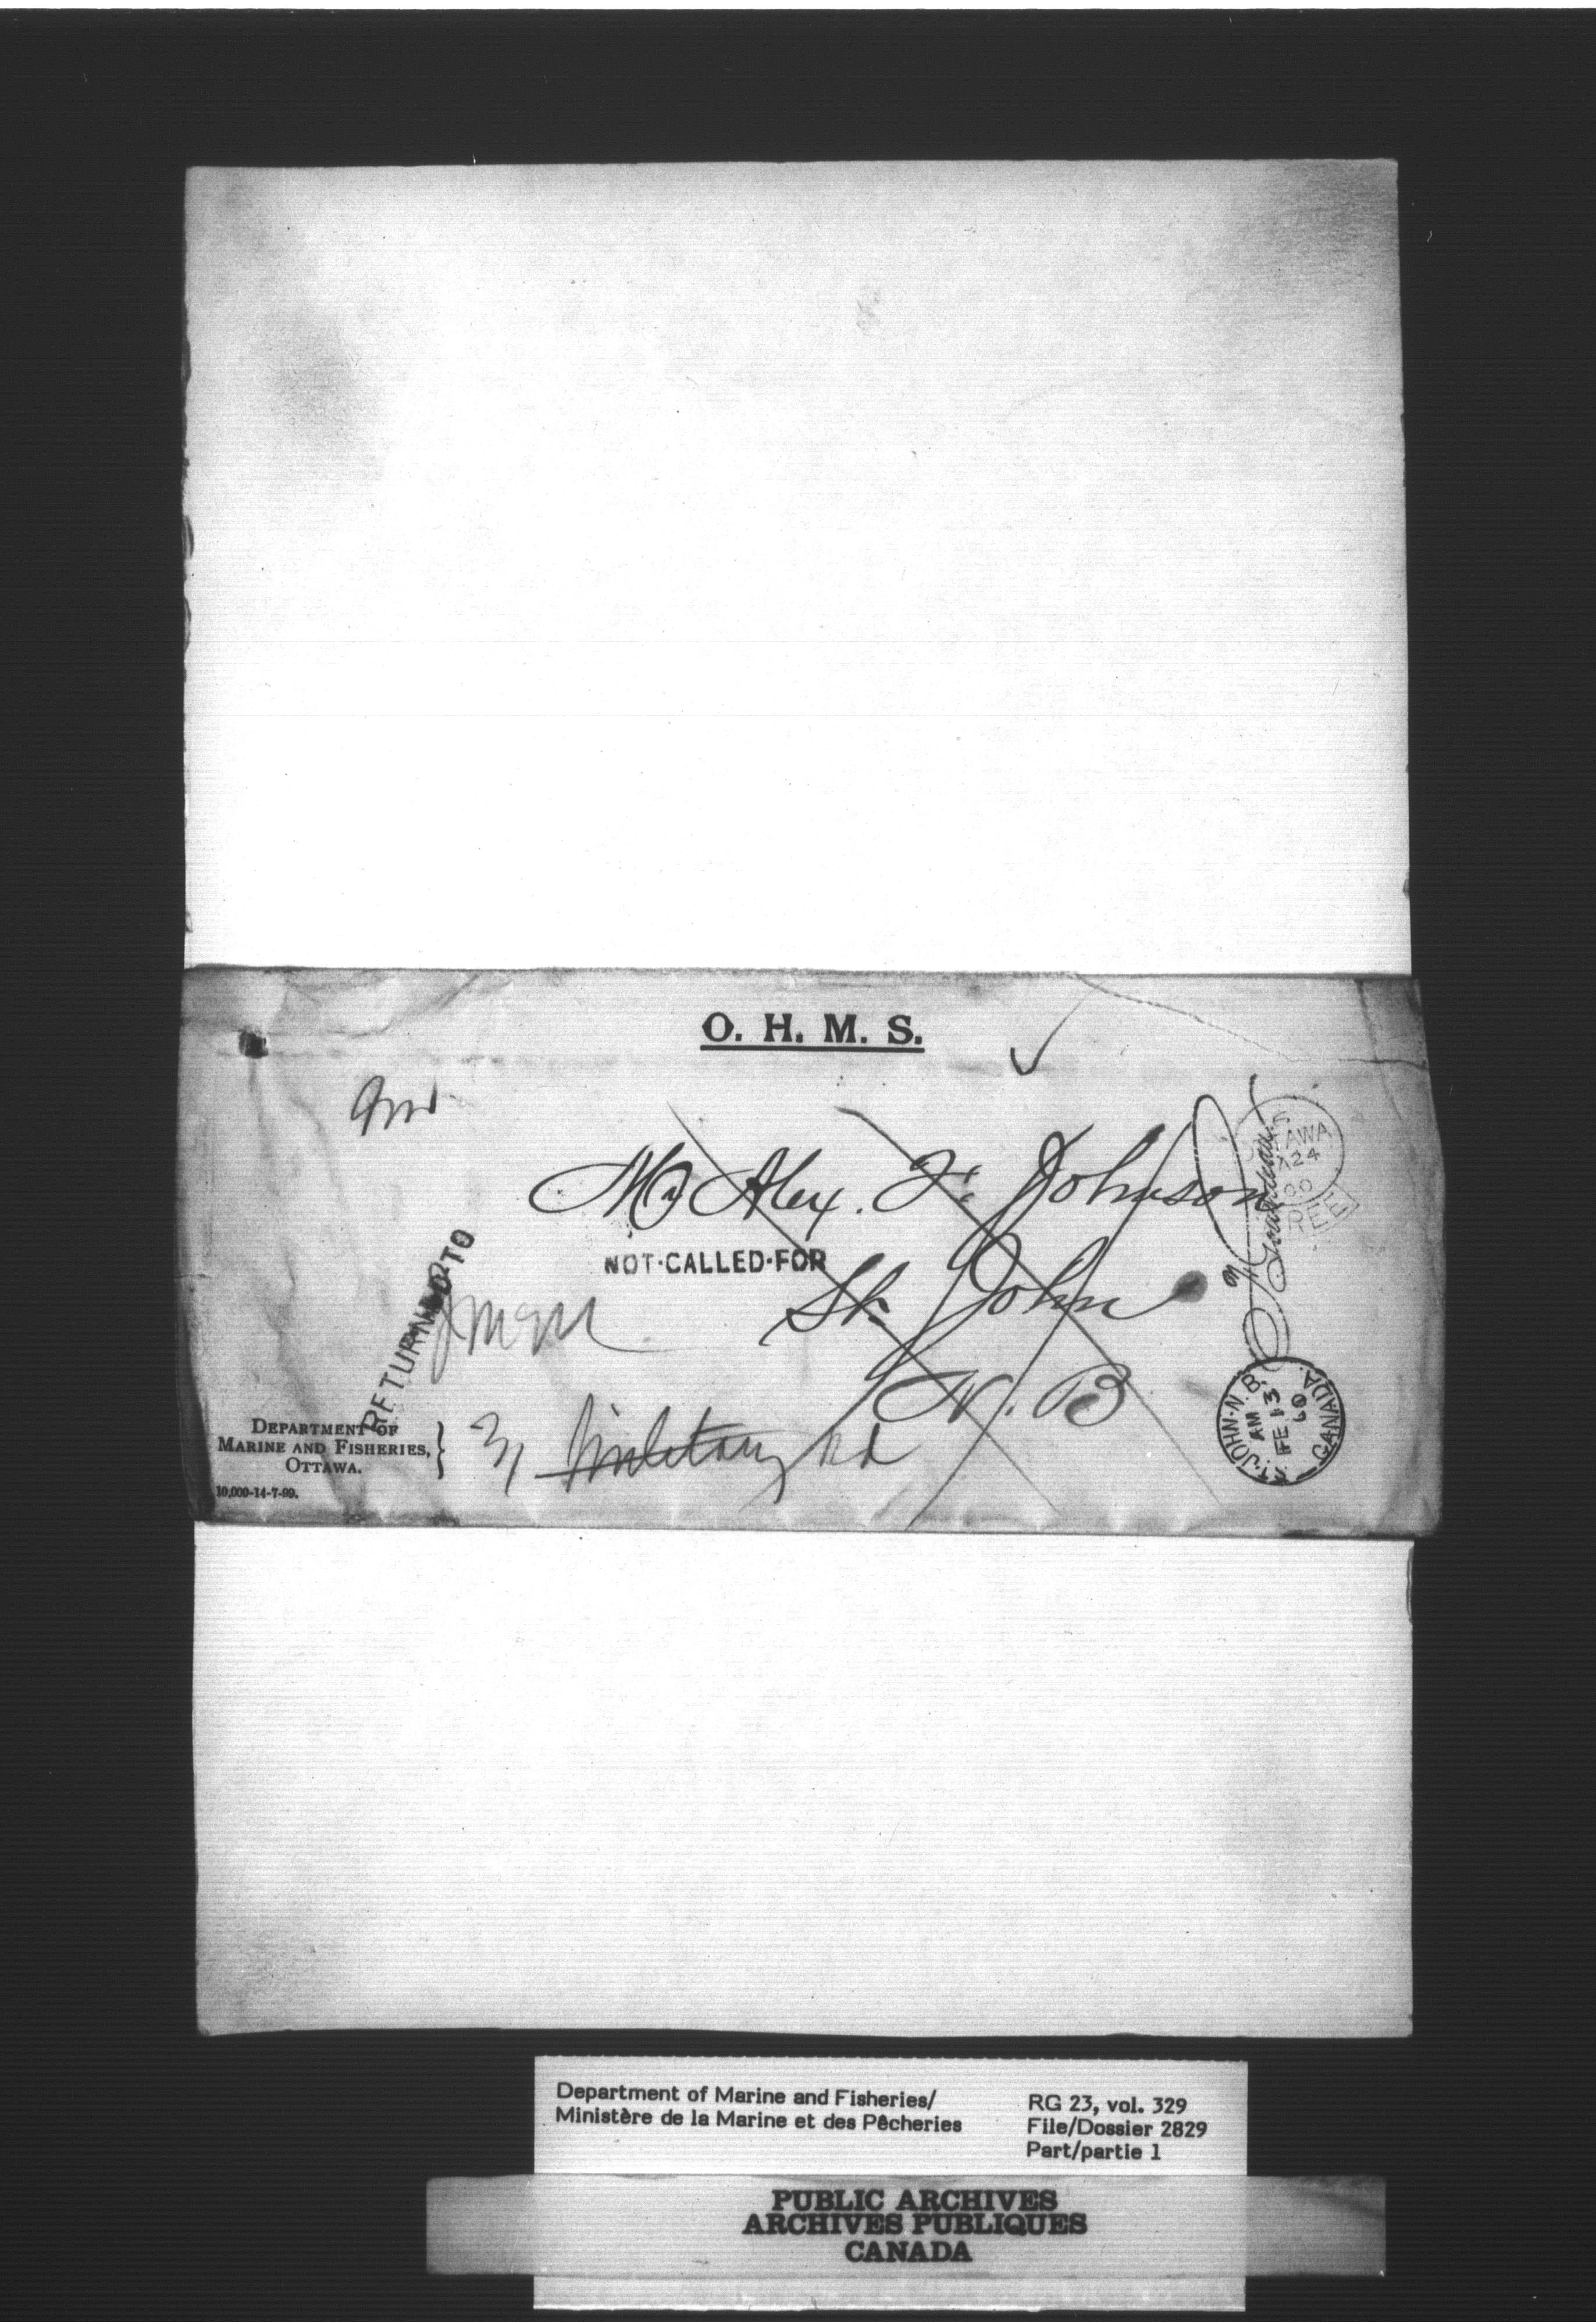 O. H. M. S.
Mr Alex. F. Johnson
NOT·CALLED·FOR
St. John
N. B
RETURNED TO
31 Military Rd
DEPARTMENT OF
MARINE AND FISHERIES,
OTTAWA.
10,000-14-7-99.
OTTAWA
24
00
FREE
ST. JOHN·N.B.
AM
FE 13
00
CANADA.
Department of Marine and Fisheries/
Ministère de la Marine et des Pêcheries
RG 23, vol. 329
File/Dossier 2829
Part/partie 1
PUBLIC ARCHIVES
ARCHIVES PUBLIQUES
CANADA